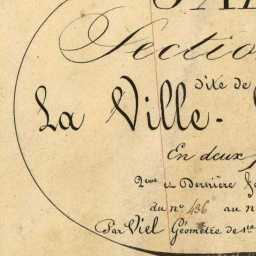 Section
dite de
La Ville-
En deux
2eme et Dernière
du n° 436 au n
Par Viel Géomètre de 1re